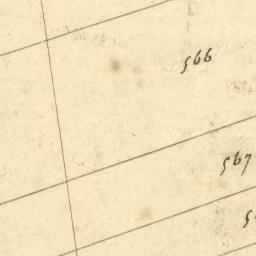 566
567